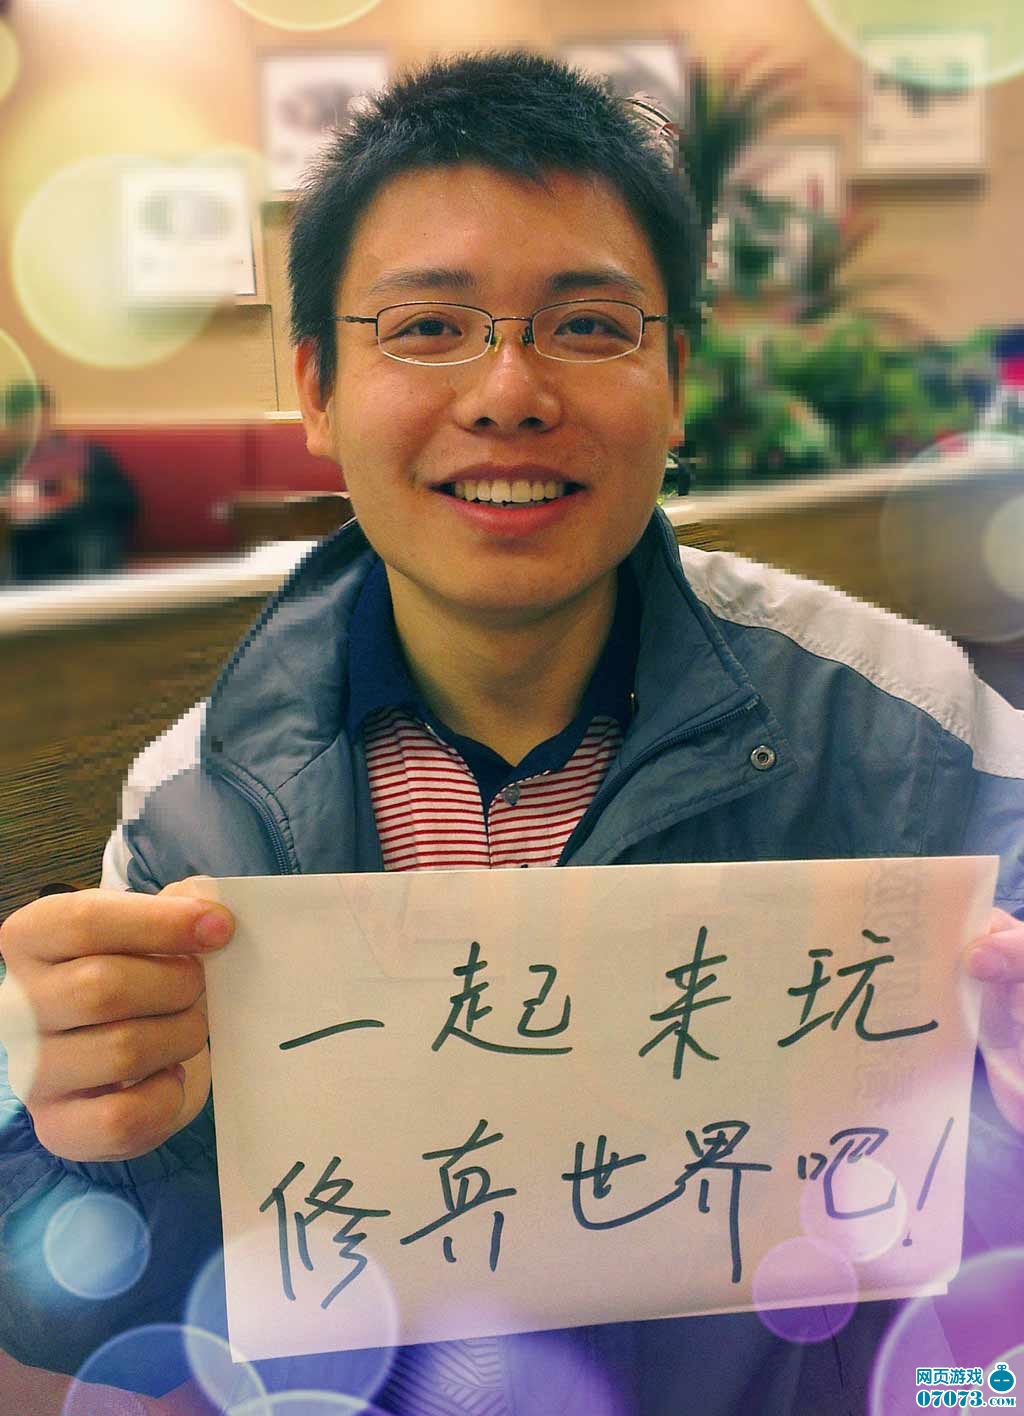 一起来玩
修真世界吧！
网页游戏
07073.COM